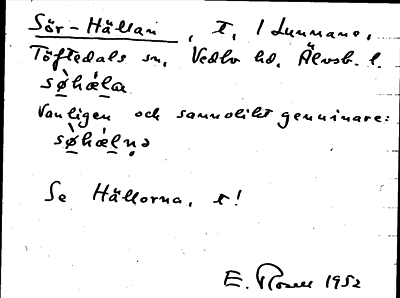 Sör-Hällan, t, 1 Lunnane,
Töftedals sn, Vedbo hd, Älvsb. l.
sø̀hǽla
Vanligen och sannolikt genuinare:
sø̀hǽlṇə
Se Hällorna, t!
E. Rosell 1952